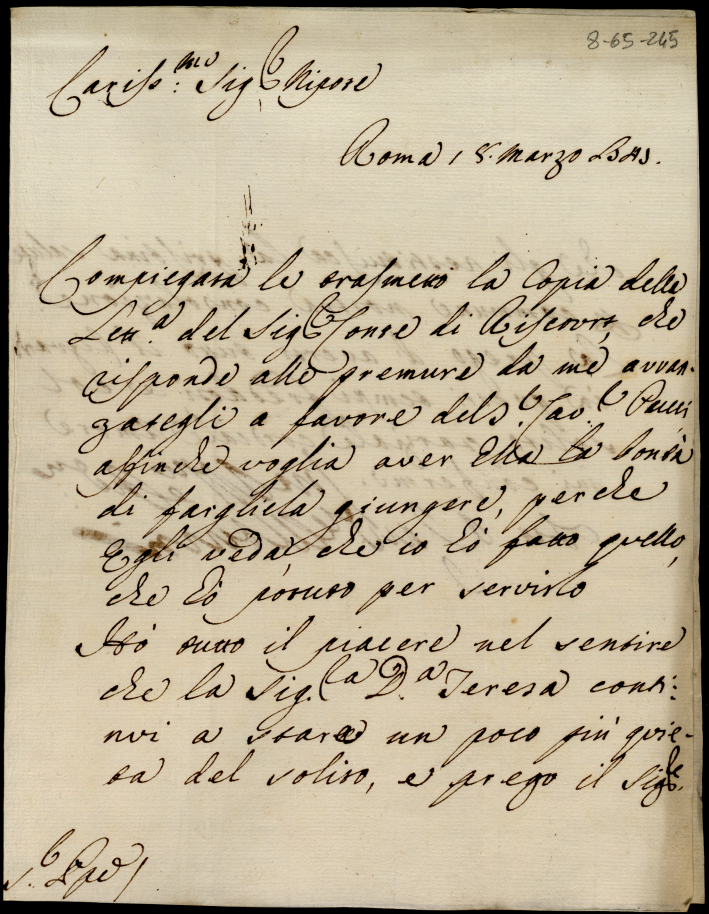 8-65-245
Cariss.mo Sig.r Nipote
Roma 18. Marzo
Compiegata le trasmetto la Copia della
Lett.a del Sig.r Conte di Riscourt, che
risponde alle premure da me avvan-
zategli a favore del S.r Cav.r Pucci
affinche voglia aver Ella la bontà
di fargliela giungere, perche
Egli veda, che io hò fatto quello,
che hò potuto per servirlo
Hò tutto il piacere nel sentire
che la Sig.ra D.a Teresa conti:
nui a stare un poco più quie-
ta del solito, e prego il Sig.re